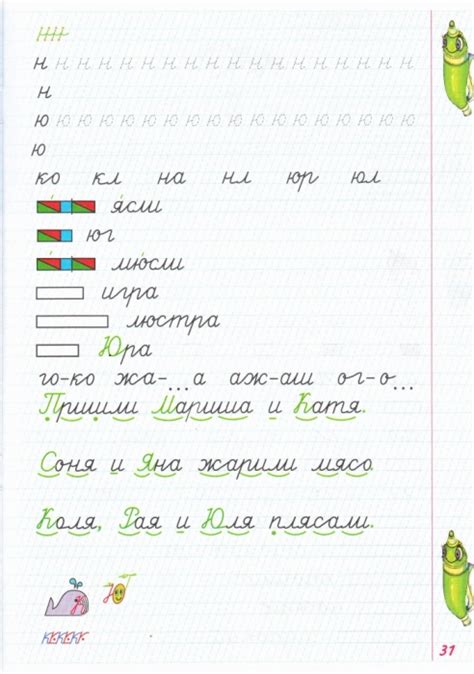 н н н н н н н н н н н н н н н н н н
н
ю ю ю ю ю ю ю ю ю ю ю ю ю ю ю ю ю ю
ю
ко кл на нл юр юл
я́сли
юг
мю́сли
игра
люстра
Юра
го-ко жа-...а аж-аш ог-о...
Пришли Мариша и Катя.
Соня и Яна жарили мясо.
Коля, Рая и Юля плясали.
31